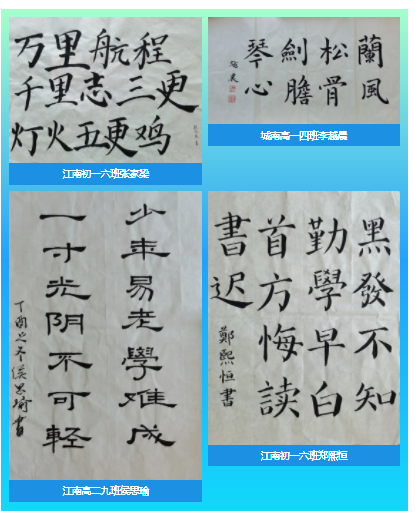 万里航程
千里志三更
灯火五更鸡
江南初一六班张家梁
蘭風
松骨
劍膽
琴心
越晨
城南高一四班李越晨
少年易老學难成
一寸光阴不可輕
丁酉之冬侯思瑜書
江南高二九班侯思瑜
黑發不知
勤學早白
首方悔读
書迟
鄭熙恒書
江南初一六班郑熙恒